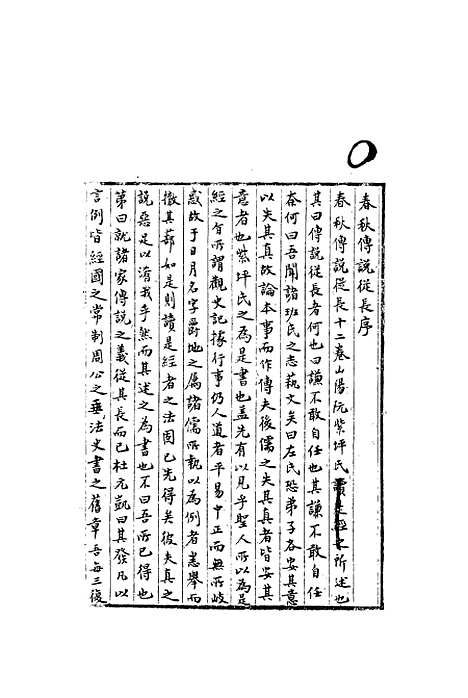 春秋傳說從長序
春秋傳說從長十二卷山陽阮紫坪氏讀是經之所述也
其曰傳說從長者何也曰謙不敢自任也其謙不敢自任
奈何曰吾聞諸班氏之志藝文矣曰左氏恐弟子各安其意
以失其真故論本事而作傳夫後儒之失其真者皆安其
意者也紫坪氏之為是書也蓋先有以見乎聖人所以為是
經之有所謂觀史記據行事仍人道者平易中正而無所歧
惑故于日月名字爵地之屬諸儒所執以為例者悉舉而
撤其蔀如是則讀是經者之法固已先得矣彼失真之
說惡足以淆我乎然而其述之為書也不曰吾所已得也
第曰就諸家傳說之義從其長而已杜元凱曰其發凡以
言例皆經國之常制周公之垂法史書之舊章吾每三復